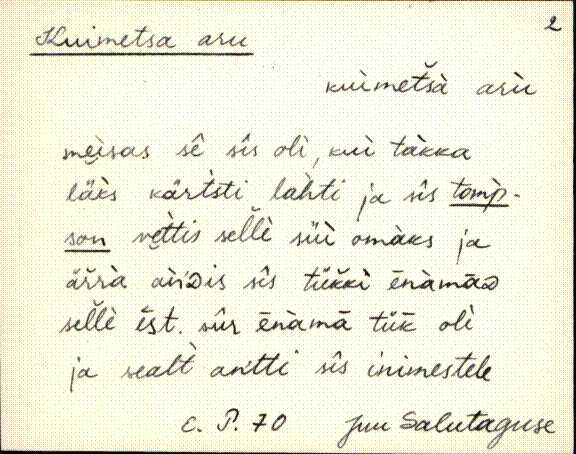 2
Kuimetsa aru
kuìmetšà arù
mẹ̀isas sê sîs olì, kui tàkka
läks kärtsti lahti ja sîs tomp-
son vẹ̀ttis sellè süì omàks ja
ärrà àńDis sîs tükkì ēnàmāD
sellè ēst. sûr ēnàmā tük̆ olì
ja sealt̀ antti sîs inimestele
E. P. 70 Juu Salutaguse